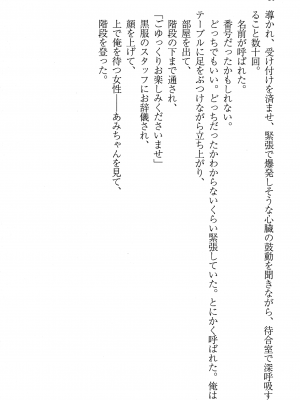 導かれ、受け付けを済ませ、緊張で爆発しそうな心臓の鼓動を聞きながら、待合室で深呼吸す
ること数十回。
名前が呼ばれた。
番号だったかもしれない。
どっちでもいい。どっちだったかわからないくらい緊張していた。とにかく呼ばれた。俺は
テーブルに足をぶつけながら立ち上がり、
部屋を出て、
階段の下まで通され、
「ごゆっくりお楽しみくださいませ」
黒服のスタッフにお辞儀され、
顔を上げて、
上で俺を待つ女性――あみちゃんを見て、
階段を登った。